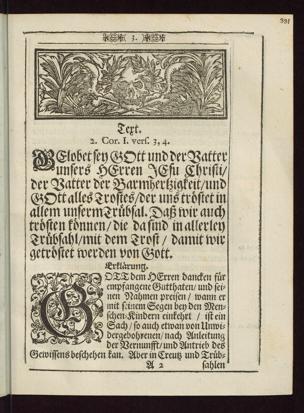 3.
331
Text.
2. Cor. I. vers. 3, 4.
GElobet sey GOtt und der Vatter
unsers HErren JEsu Christi/
der Vatter der Barmhertzigkeit/ und
GOtt alles Trostes/ der uns tröstet in
allem unserm Trübsal. Daß wir auch
trösten können/ die da sind in allerley
Trübsahl/ mit dem Trost/ damit wir
getröstet werden von Gott.
Erklärung.
GOTT dem HErren dancken für
empfangene Gutthaten/ und sei-
nen Nahmen preisen/ wann er
mit seinem Segen bey den Men-
schen-Kindern einkehrt/ ist ein
Sach/ so auch etwan von Unwi-
dergebohrenen/ nach Anleitung
der Vernunfft/ und Antrieb des
Gewissens beschehen kan. Aber in Creutz und Trüb-
A 2 sahlen